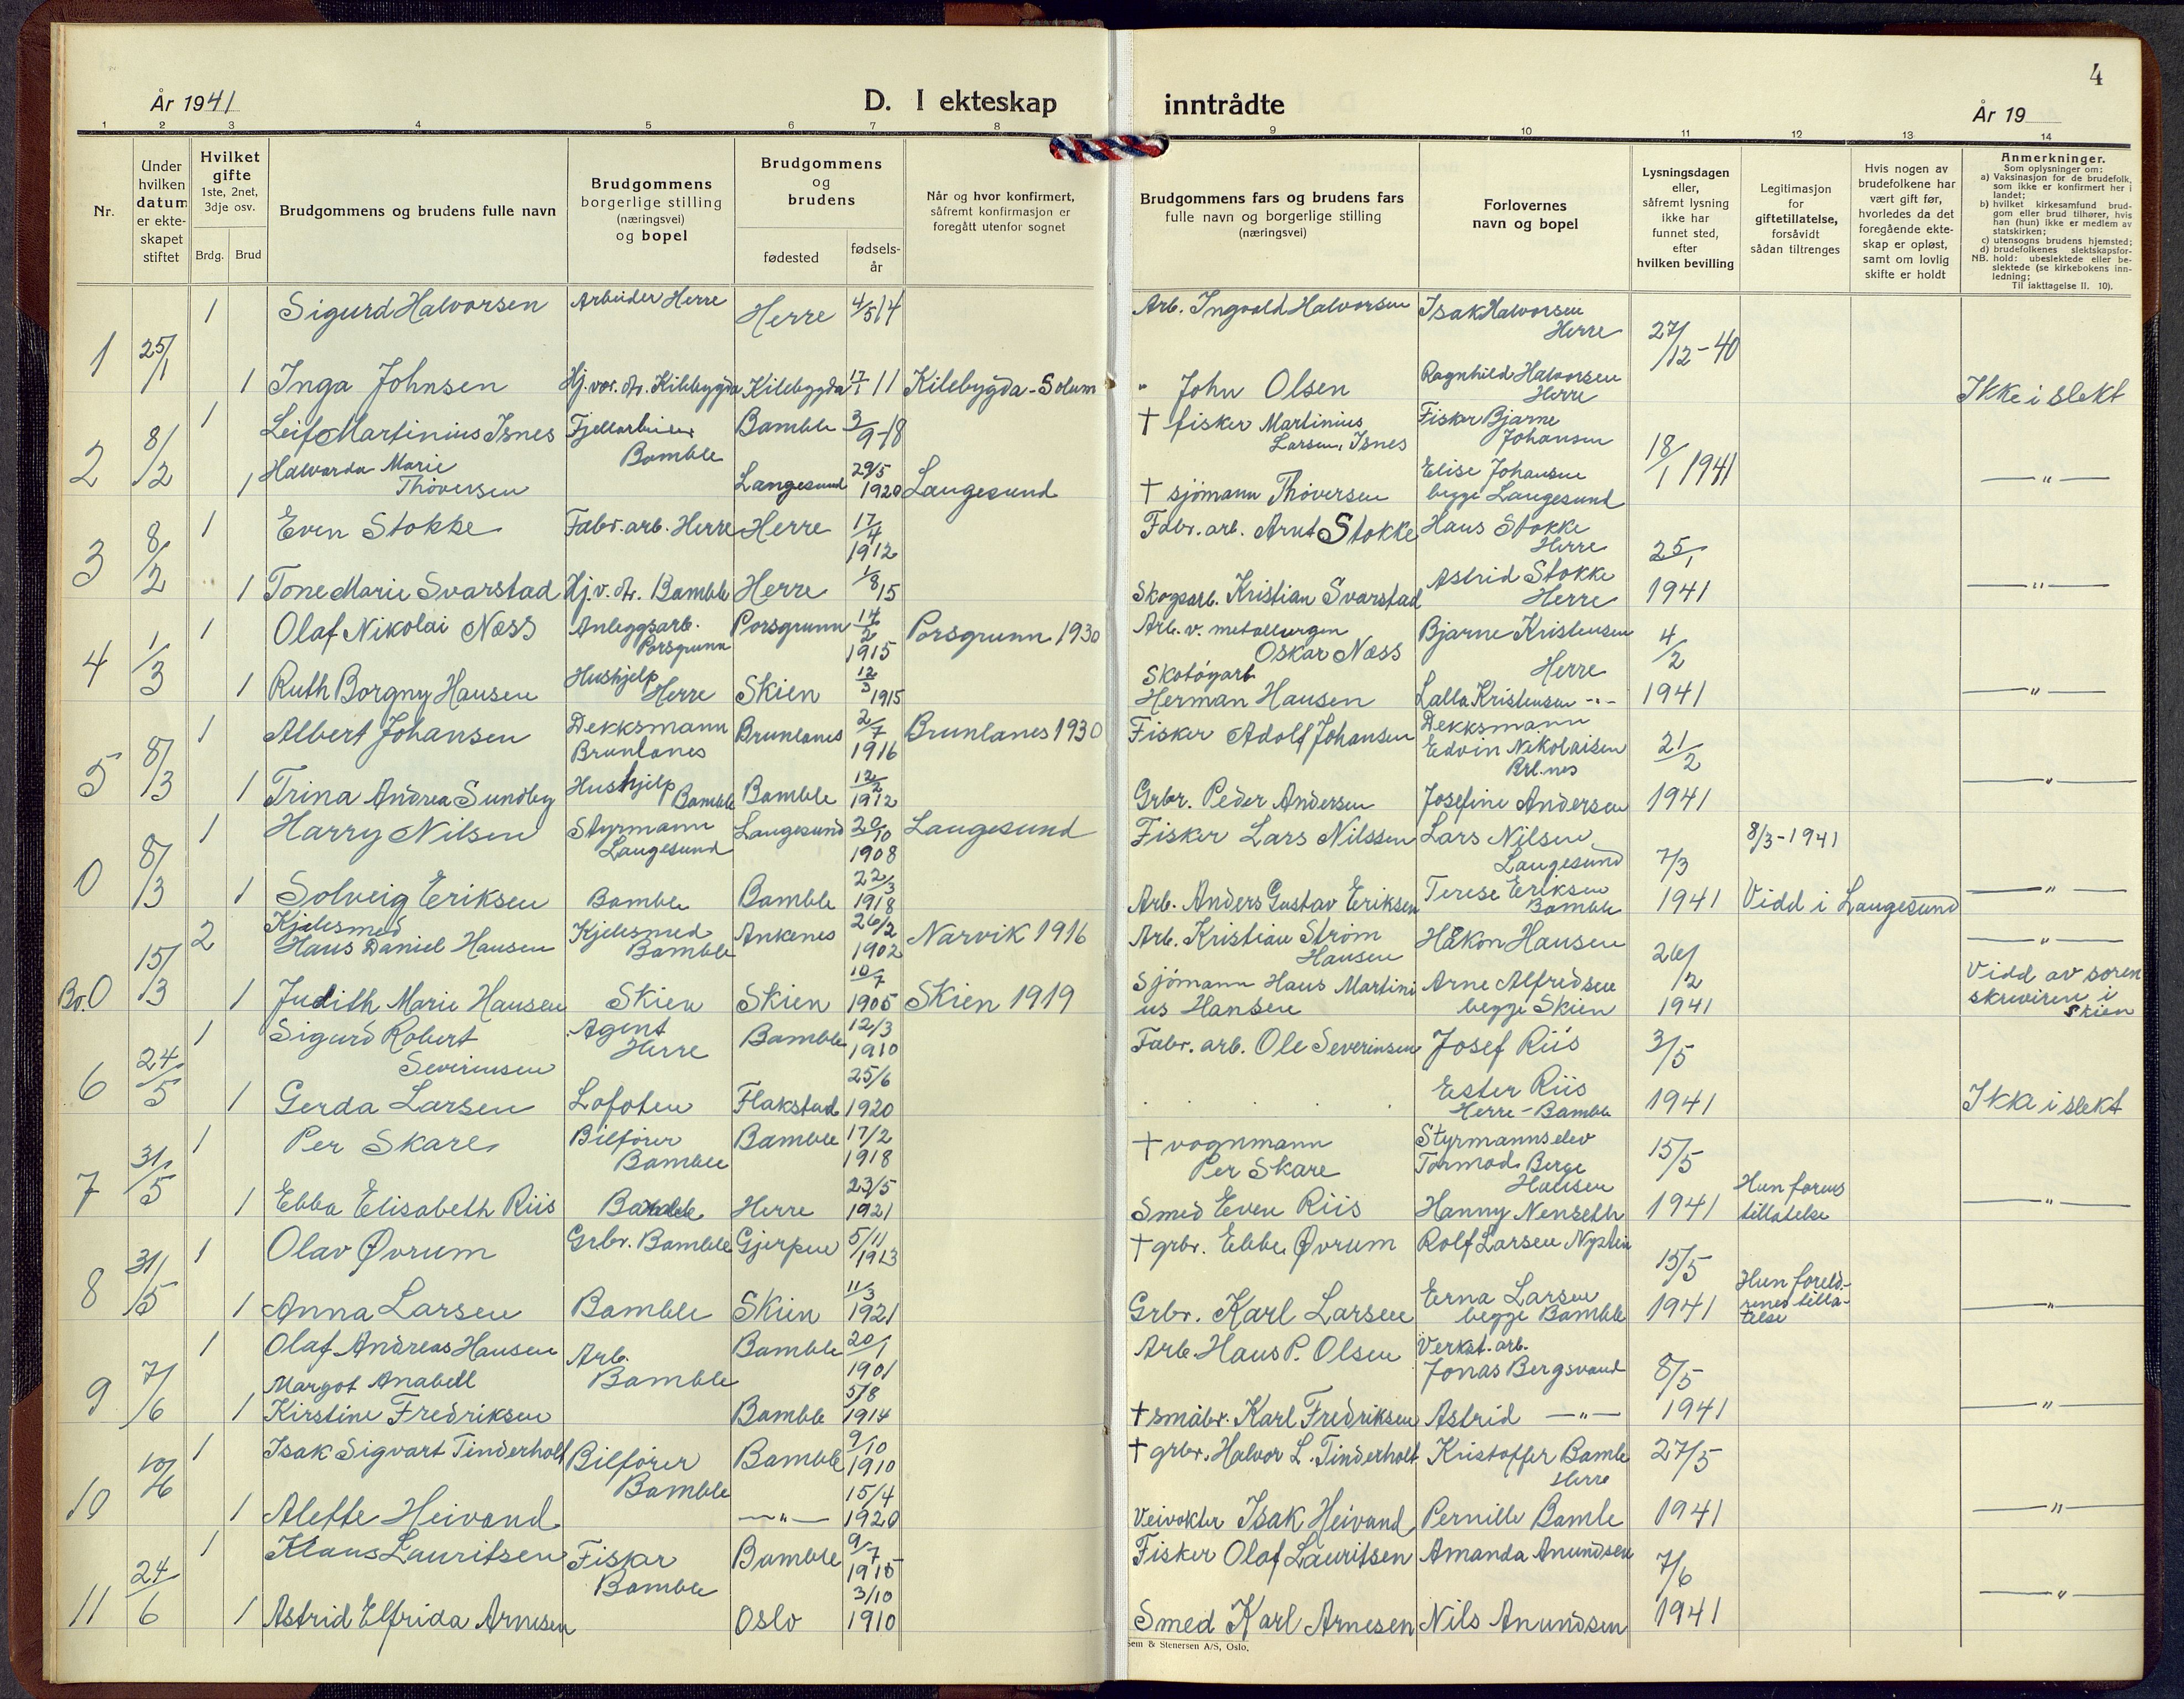 4
År 1941
D. I ekteskap inntrådte
År 19
1 2 3 4 5 6 7 8 9 10 11 12 13 14
Nr.
Under
hvilken
datum
er ekte-
skapet
stiftet
Hvilket
gifte
1ste, 2net,
3dje osv.
Brdg. Brud
Brudgommens og brudens fulle navn
Brudgommens
borgerlige stilling
(næringsvei)
og bopel
Brudgommens
og
brudens
fødested
fødsels-
år
Når og hvor konfirmert,
såfremt konfirmasjon er
foregått utenfor sognet
Brudgommens fars og brudens fars
fulle navn og borgerlige stilling
(næringsvei)
Forlovernes
navn og bopel
Lysningsdagen
eller,
såfremt lysning
ikke har
funnet sted,
efter
hvilken bevilling
Legitimasjon
for
giftetillatelse,
forsåvidt
sådan tiltrenges
Hvis nogen av
brudefolkene har
vært gift før,
hvorledes da det
foregående ekte-
skap er opløst,
samt om lovlig
skifte er holdt
Anmerkninger.
Som oplysninger om:
a) Vaksinasjon for de brudefolk,
som ikke er konfirmert her i
landet;
b) hvilket kirkesamfund brud-
gom eller brud tilhører, hvis
han (hun) ikke er medlem av
statskirken;
c) utensogns brudens hjemsted;
d) brudefolkenes slektskapsfor-
NB. hold: ubeslektede eller be-
slektede (se kirkebokens inn-
ledning;
Til iakttagelse II. 10).
1 25/1 1 Sigurd Halvorsen Arbeider Herre Herre 4/5 14 Arb. Ingvald Halvorsen Isak Halvorsen Herre 27/12-40
1 Inga Johnsen Hj.vær. dtr. Kilebygda Kilebygda 17/1 11 Kilebygda-Solum " John Olsen Ragnhild Halvorsen Herre Ikke i slekt
2 8/2 1 Leif Martinius Isnes Fjellarbeider Bamble Bamble 3/9-18 † fisker Martinius Larsen, Isnes Fisker Bjarne Johansen 18/1 1941
1 Halvarda Marie Thóversen Langesund 29/5 1920 Langesund † sjömann Thóversen Elise Johansen begge Langesund —"—
3 8/2 1 Even Stokke Fabr. arb. Herre Herre 17/4 1912 Fabr. arb. Arnt Stokke Hans Stokke Herre 25/1
1 Tone Marie Svarstad Hj.v. dtr. Bamble Herre 1/8 15 Skogsarb. Kristian Svarstad Astrid Stokke Herre 1941 —"—
4 1/3 1 Olaf Nikolai Næss Anleggsarb. Porsgrunn Porsgrunn 14/2 1915 Porsgrunn 1930 Arb. v. metallurgen Oskar Næss Bjarne Kristensen Herre 4/2
1 Ruth Borgny Hansen Hushjelp Herre Skien 12/3 1915 Skotöyarb Herman Hansen Lalla Kristensen -"- 1941 —"—
5 8/3 1 Albert Johansen Dekksmann Brunlanes Brunlanes 2/7 1916 Brunlanes 1930 Fisker Adolf Johansen Dekksmann Edvin Nikolaisen Brl.nes 21/2
1 Trina Andrea Sundby Hushjelp Bamble Bamble 12/2 1912 Grbr. Peder Andersen Josefine Andersen 1941 —"—
0 8/3 1 Harry Nilsen Styrmann Langesund Langesund 20/10 1908 Langesund Fisker Lars Nilssen Lars Nilsen Langesund 7/3 8/3-1941
1 Solveig Eriksen Bamble Bamble 22/3 1918 Arb. Anders Gustav Eriksen Terese Eriksen Bamble 1941 Vidd i Langesund —"—
B.v.0 15/3 2 Kjelesmed Hans Daniel Hansen Kjelesmed Bamble Ankenes 26/2 1902 Narvik 1916 Arb. Kristian Ström Hansen Håkon Hansen 26/2 —"—
1 Judith Marie Hansen Skien Skien 10/7 1905 Skien 1919 Sjömann Hans Martini us Hansen Arne Alfredsen begge Skien 1941 Vidd av soren skriveren i Skien
6 24/5 1 Sigurd Robert Severinsen Agent Herre Bamble 12/3 1910 Fabr. arb. Ole Severinsen Josef Riis 3/5
1 Gerda Larsen Lofoten Flakstad 25/6 1920 Ester Riis Herre-Bamble 1941 Ikke i slekt
7 31/5 1 Per Skare Bilförer Bamble Bamble 17/2 1918 † vognmann Per Skare Styrmannselev Tormod Berge Hansen 15/5
1 Ebba Elisabeth Riis Bamble Herre 23/5 1921 Smed Even Riis Hanny Nenseth 1941 Hun farens tillatelse —"—
8 31/5 1 Olav Øvrum Grbr. Bamble Gjerpen 5/11 1913 † grbr. Ebbe Øvrum Rolf Larsen 15/5
1 Anna Larsen Bamble Skien 11/3 1921 Grbr. Karl Larsen Erna Larsen begge Bamble 1941 Hun foreld- renes tilla- telse —"—
9 7/6 1 Olaf Andreas Hansen Arb. Bamble Bamble 20/1 1901 Arb. Hans P. Olsen Verkst. arb. Jonas Bergsvand 8/5
1 Margot Anabell Kirstine Fredriksen Bamble 5/8 1914 † småbr. Karl Fredriksen Astrid —"— 1941 —"—
10 10/6 1 Isak Sigvart Tinderholt Bilförer Bamble Bamble 9/10 1910 † grbr. Halvor L. Tinderholt Kristoffer Bamle Herre 27/5
1 Alette Heivand —"— 15/4 1920 Veivokter Isak Heivand Pernille Bamle 1941 —"—
11 24/6 1 Klaus Lauritsen Fisker Bamble Bamble 9/7 1915 Fisker Olaf Lauritsen Amanda Anundsen 7/6
1 Astrid Elfrida Arnesen Oslo 3/10 1910 Smed Karl Arnesen Nils Anundsen 1941 —"—
Sem & Stenersen A/S, Oslo.